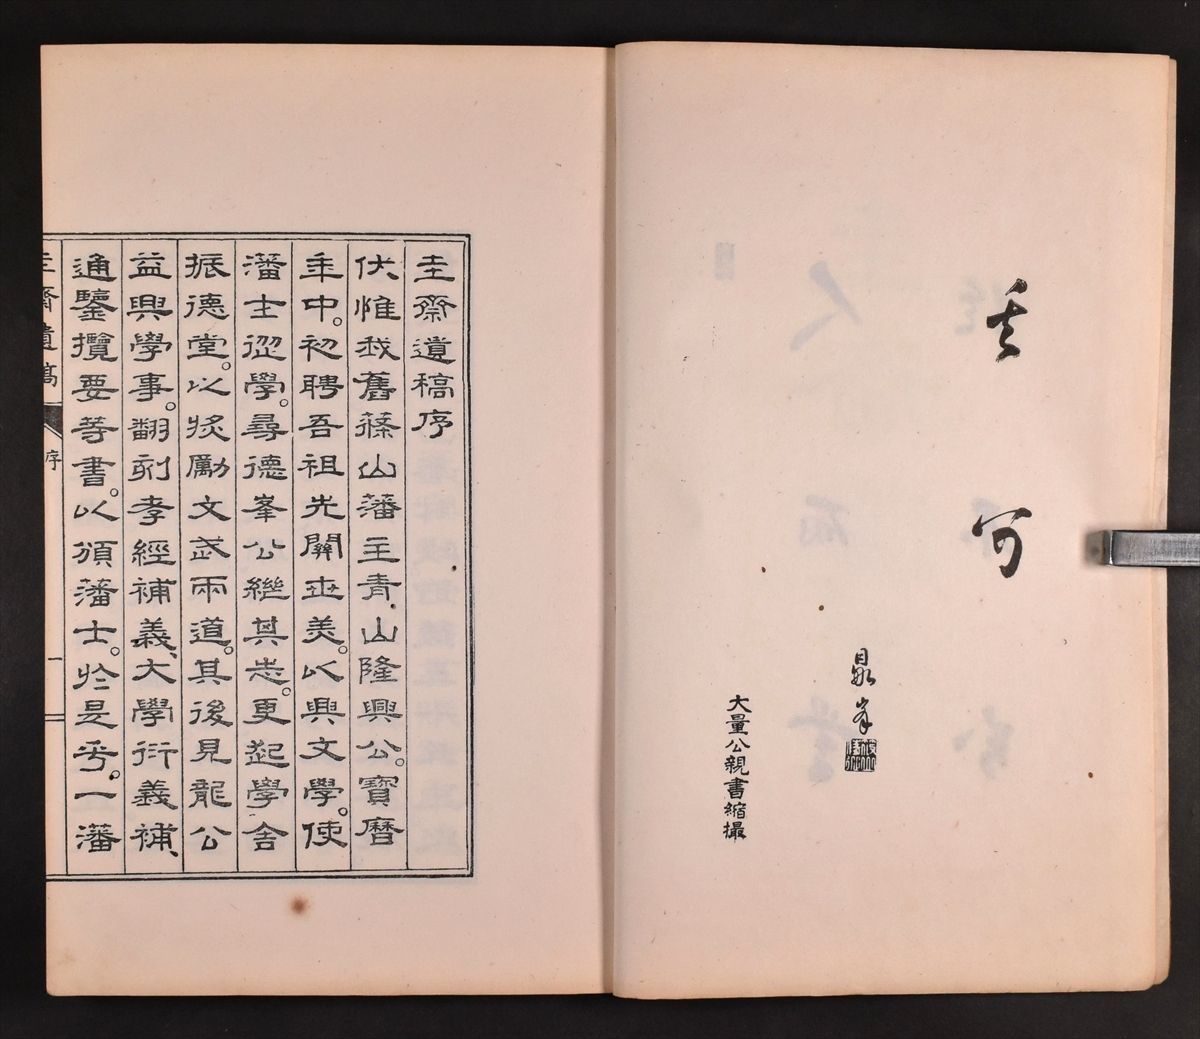 可
大量公親書縮撮
圭齋遺稿序
伏惟我舊篠山藩主青山隆興公。寶曆
年中。初聘吾祖先關世美。以興文學。使
藩士從學。尋德峯公繼其志。更起學舍
振德堂。以奬勵文武兩道。其後見龍公
益興學事。翻刻孝經補義、大學衍義補、
通鑒攬要等書。以頒藩士。於是乎。一藩
圭齋遺稿 序 一